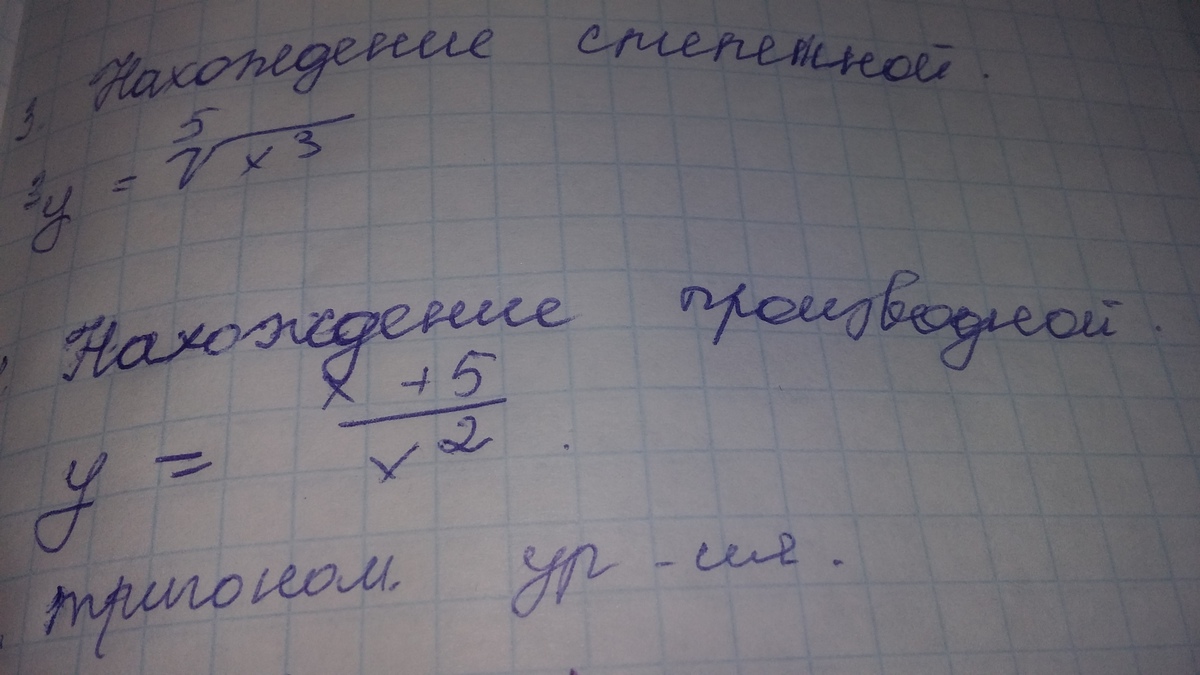 3. Нахождение степенной.
y = ⁵√x³
Нахождение производной.
y = (x + 5) / x²
тригоном. ур-ия.